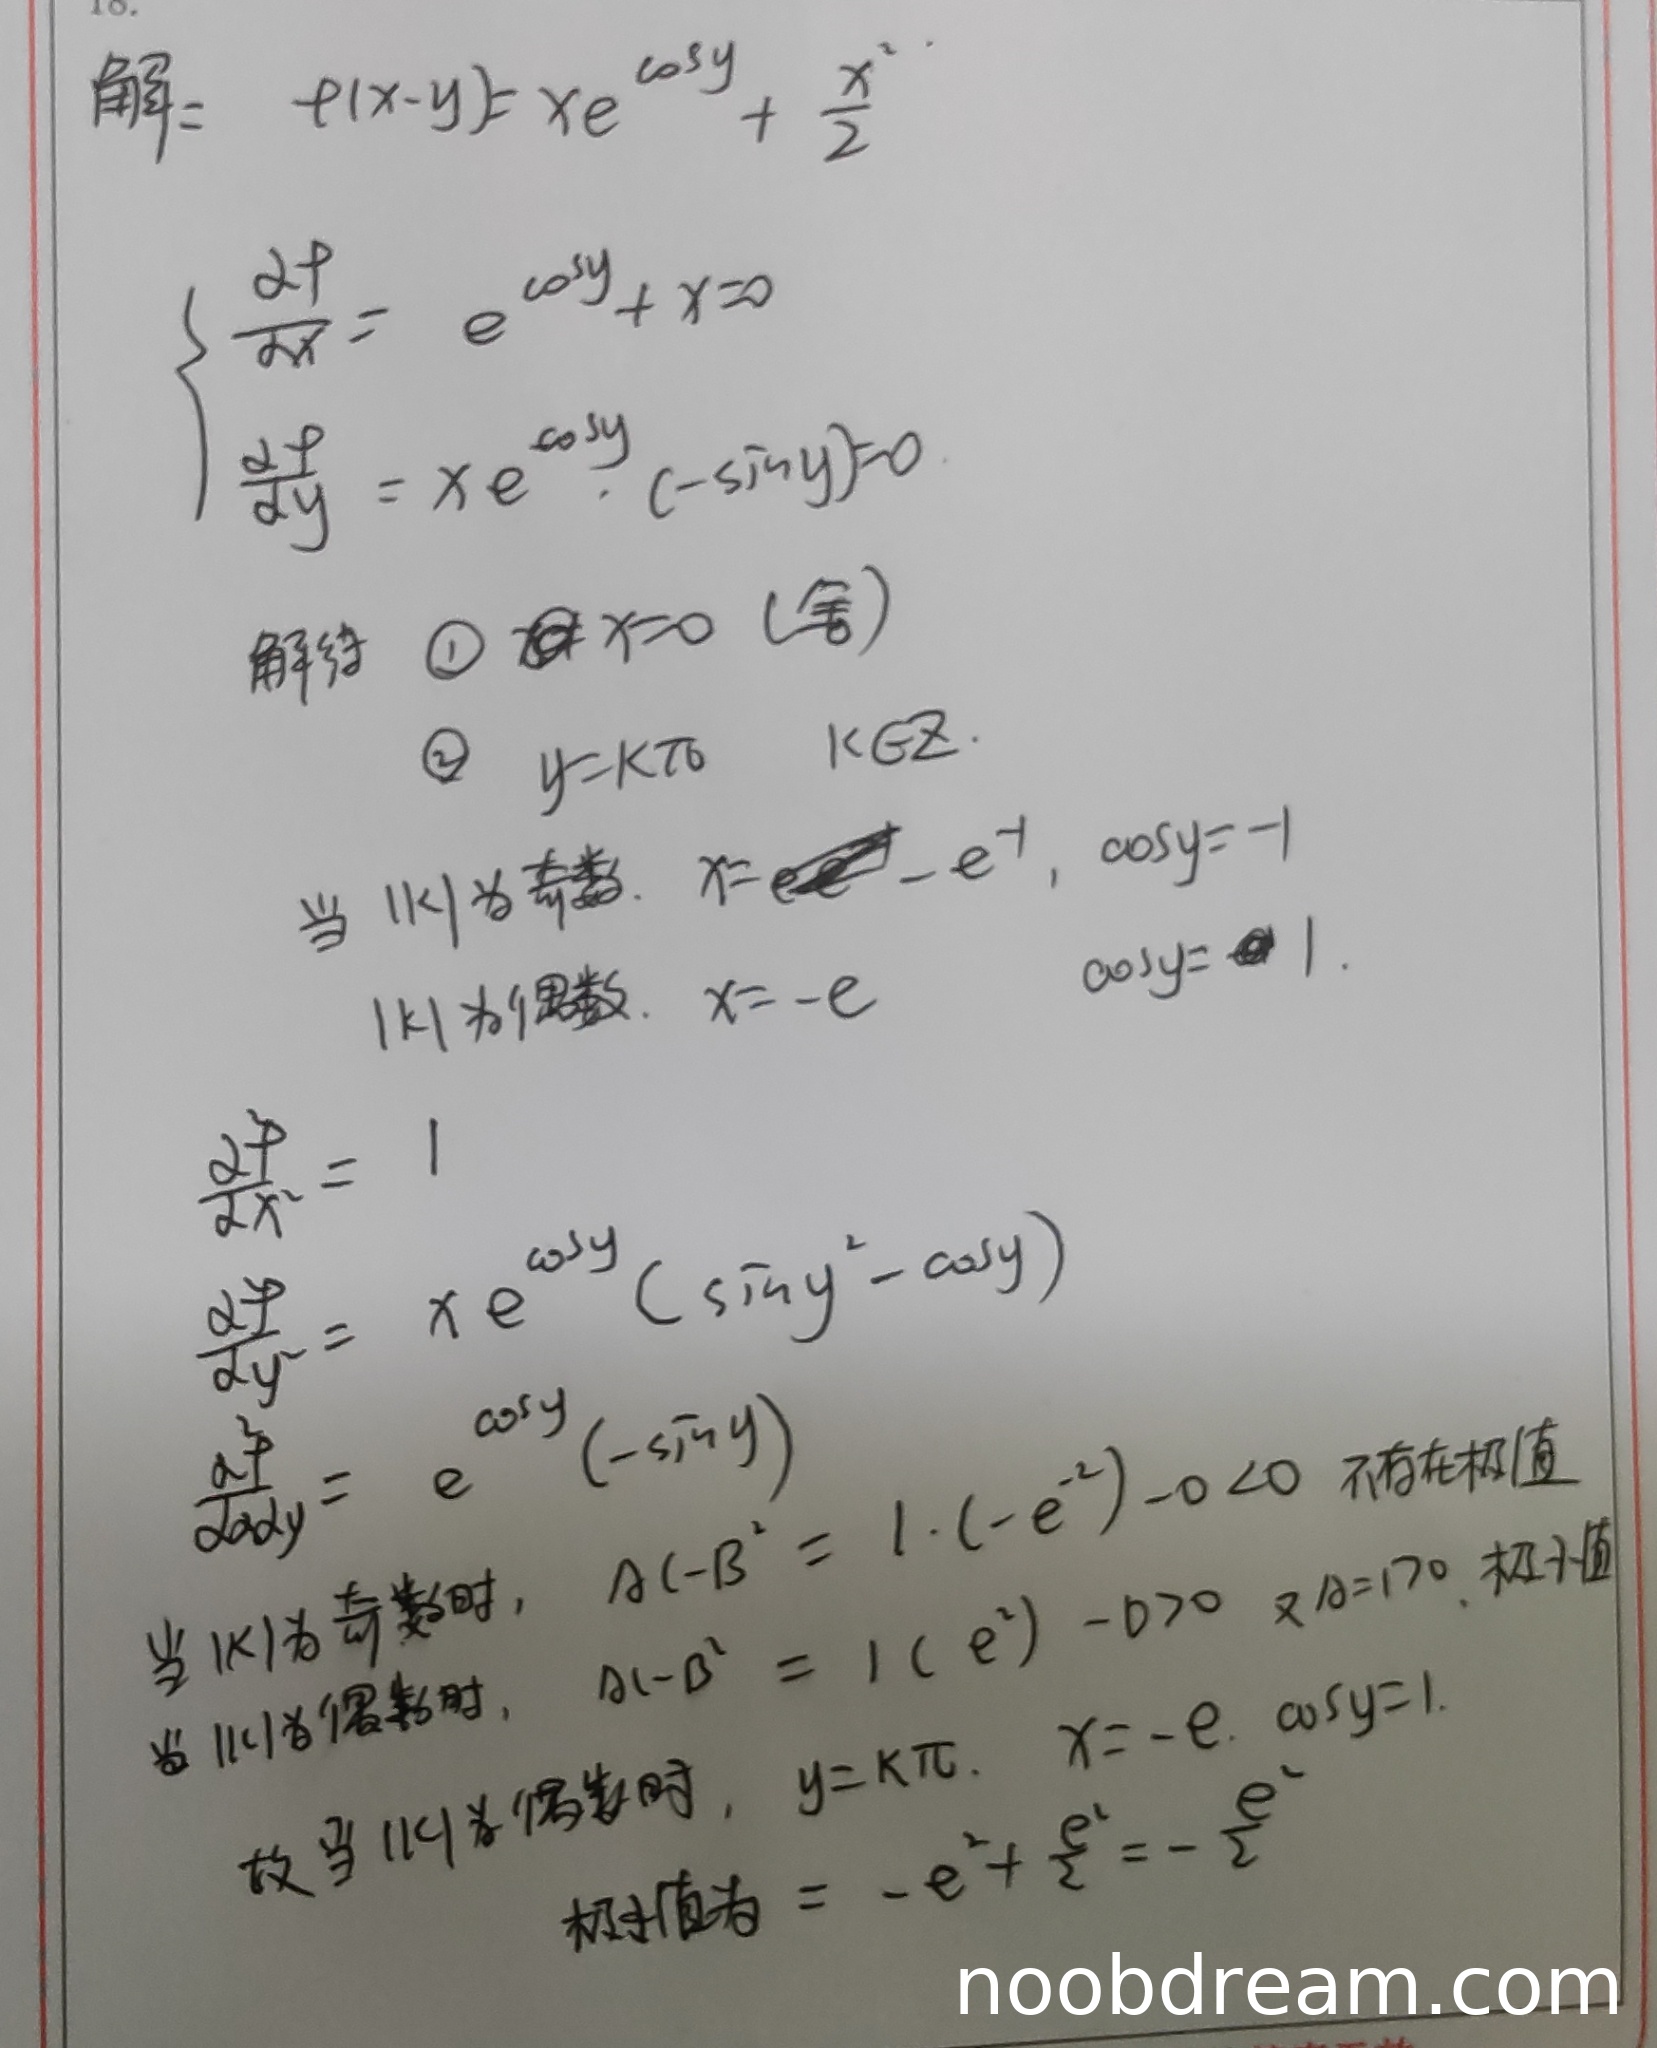 18.
解: f(x-y)= xe^{cosy} + \frac{x^2}{2}.
\frac{∂f}{∂x} = e^{cosy} + x=0
\frac{∂f}{∂y} = xe^{cosy}·(-siny)=0.
解得 ① x=0 (舍)
② y=kπ K∈Z.
当 |k| 为奇数. x= -e^{-1}, cosy=-1
|k| 为偶数. x=-e cosy= 1.
\frac{∂^2f}{∂x^2} = 1
\frac{∂^2f}{∂y^2} = xe^{cosy}(siny^2-cosy)
\frac{∂^2f}{∂x∂y} = e^{cosy}(-siny)
当 |k| 为奇数时, AC-B^2 = 1·(-e^{-2})-0<0 不存在极值
当 |k| 为偶数时, AC-B^2 = 1(e^2)-0>0 又A=1>0. 极小值
故当 |k| 为偶数时, y=kπ. x=-e. cosy=1.
极小值为 = -e^2+\frac{e^2}{2}=-\frac{e^2}{2}
noobdream.com